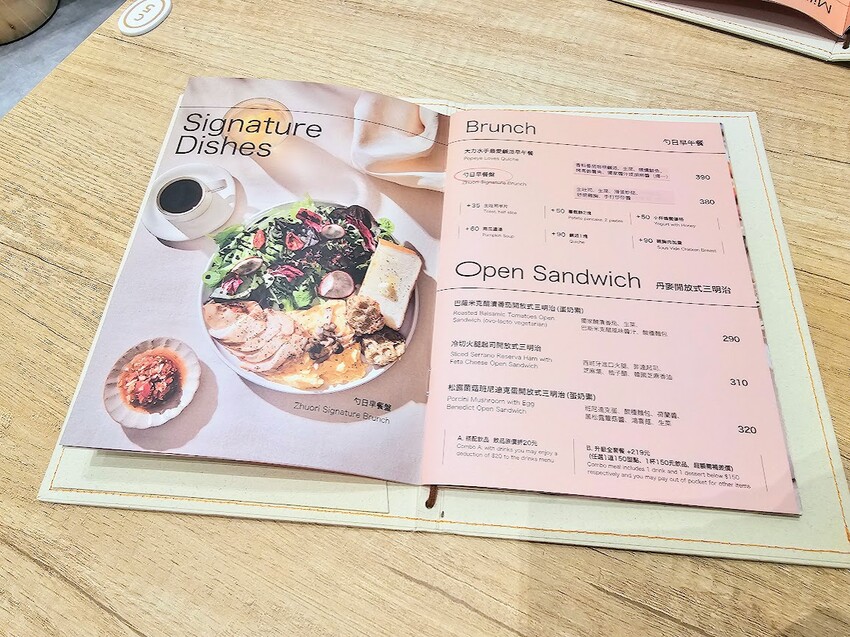 5C
Signature
Dishes
勺日早餐盤
Zhuori Signature Brunch
Brunch
勺日早午餐
大力水手最愛鹹派早午餐
Popeye Loves Quiche
390
勺日早餐盤
Zhuori Signature Brunch
380
+35
Toast, half slice
+50 薯餅2塊
Potato pancake, 2 pieces
+50
Yogurt with Honey
+60 南瓜濃湯
Pumpkin Soup
+90 鹹派1塊
Quiche
+90 舒肥雞胸
Sous Vide Chicken Breast
Open Sandwich
丹麥開放式三明治
巴薩米克醋漬番茄開放式三明治(蛋奶素)
Roasted Balsamic Tomatoes Open
Sandwich (ovo-lacto vegetarian)
獨家醋漬番茄、生菜、
巴斯米克醋風味醬汁、酸種麵包
290
冷切火腿起司開放式三明治
Sliced Serrano Reserva Ham with
Feta Cheese Open Sandwich
西班牙進口火腿、菲達起司、
芝麻葉、柚子醋、韓國芝麻香油
310
松露菌菇班尼迪克蛋開放式三明治(蛋奶素)
Porcini Mushroom with Egg
Benedict Open Sandwich
班尼迪克蛋、酸種麵包、荷蘭醬、
黑松露蘑菇醬、鴻喜菇、生菜
320
A. 搭配飲品 飲品原價折20元
Combo A. with drinks you may enjoy a
deduction of $20 to the drinks menu
B. 升級全套餐 +219元
(任選1道150甜點、1杯150元飲品、超額需補差價)
Combo meal includes 1 drink and 1 dessert below $150
respectively and you may pay out of pocket for other items